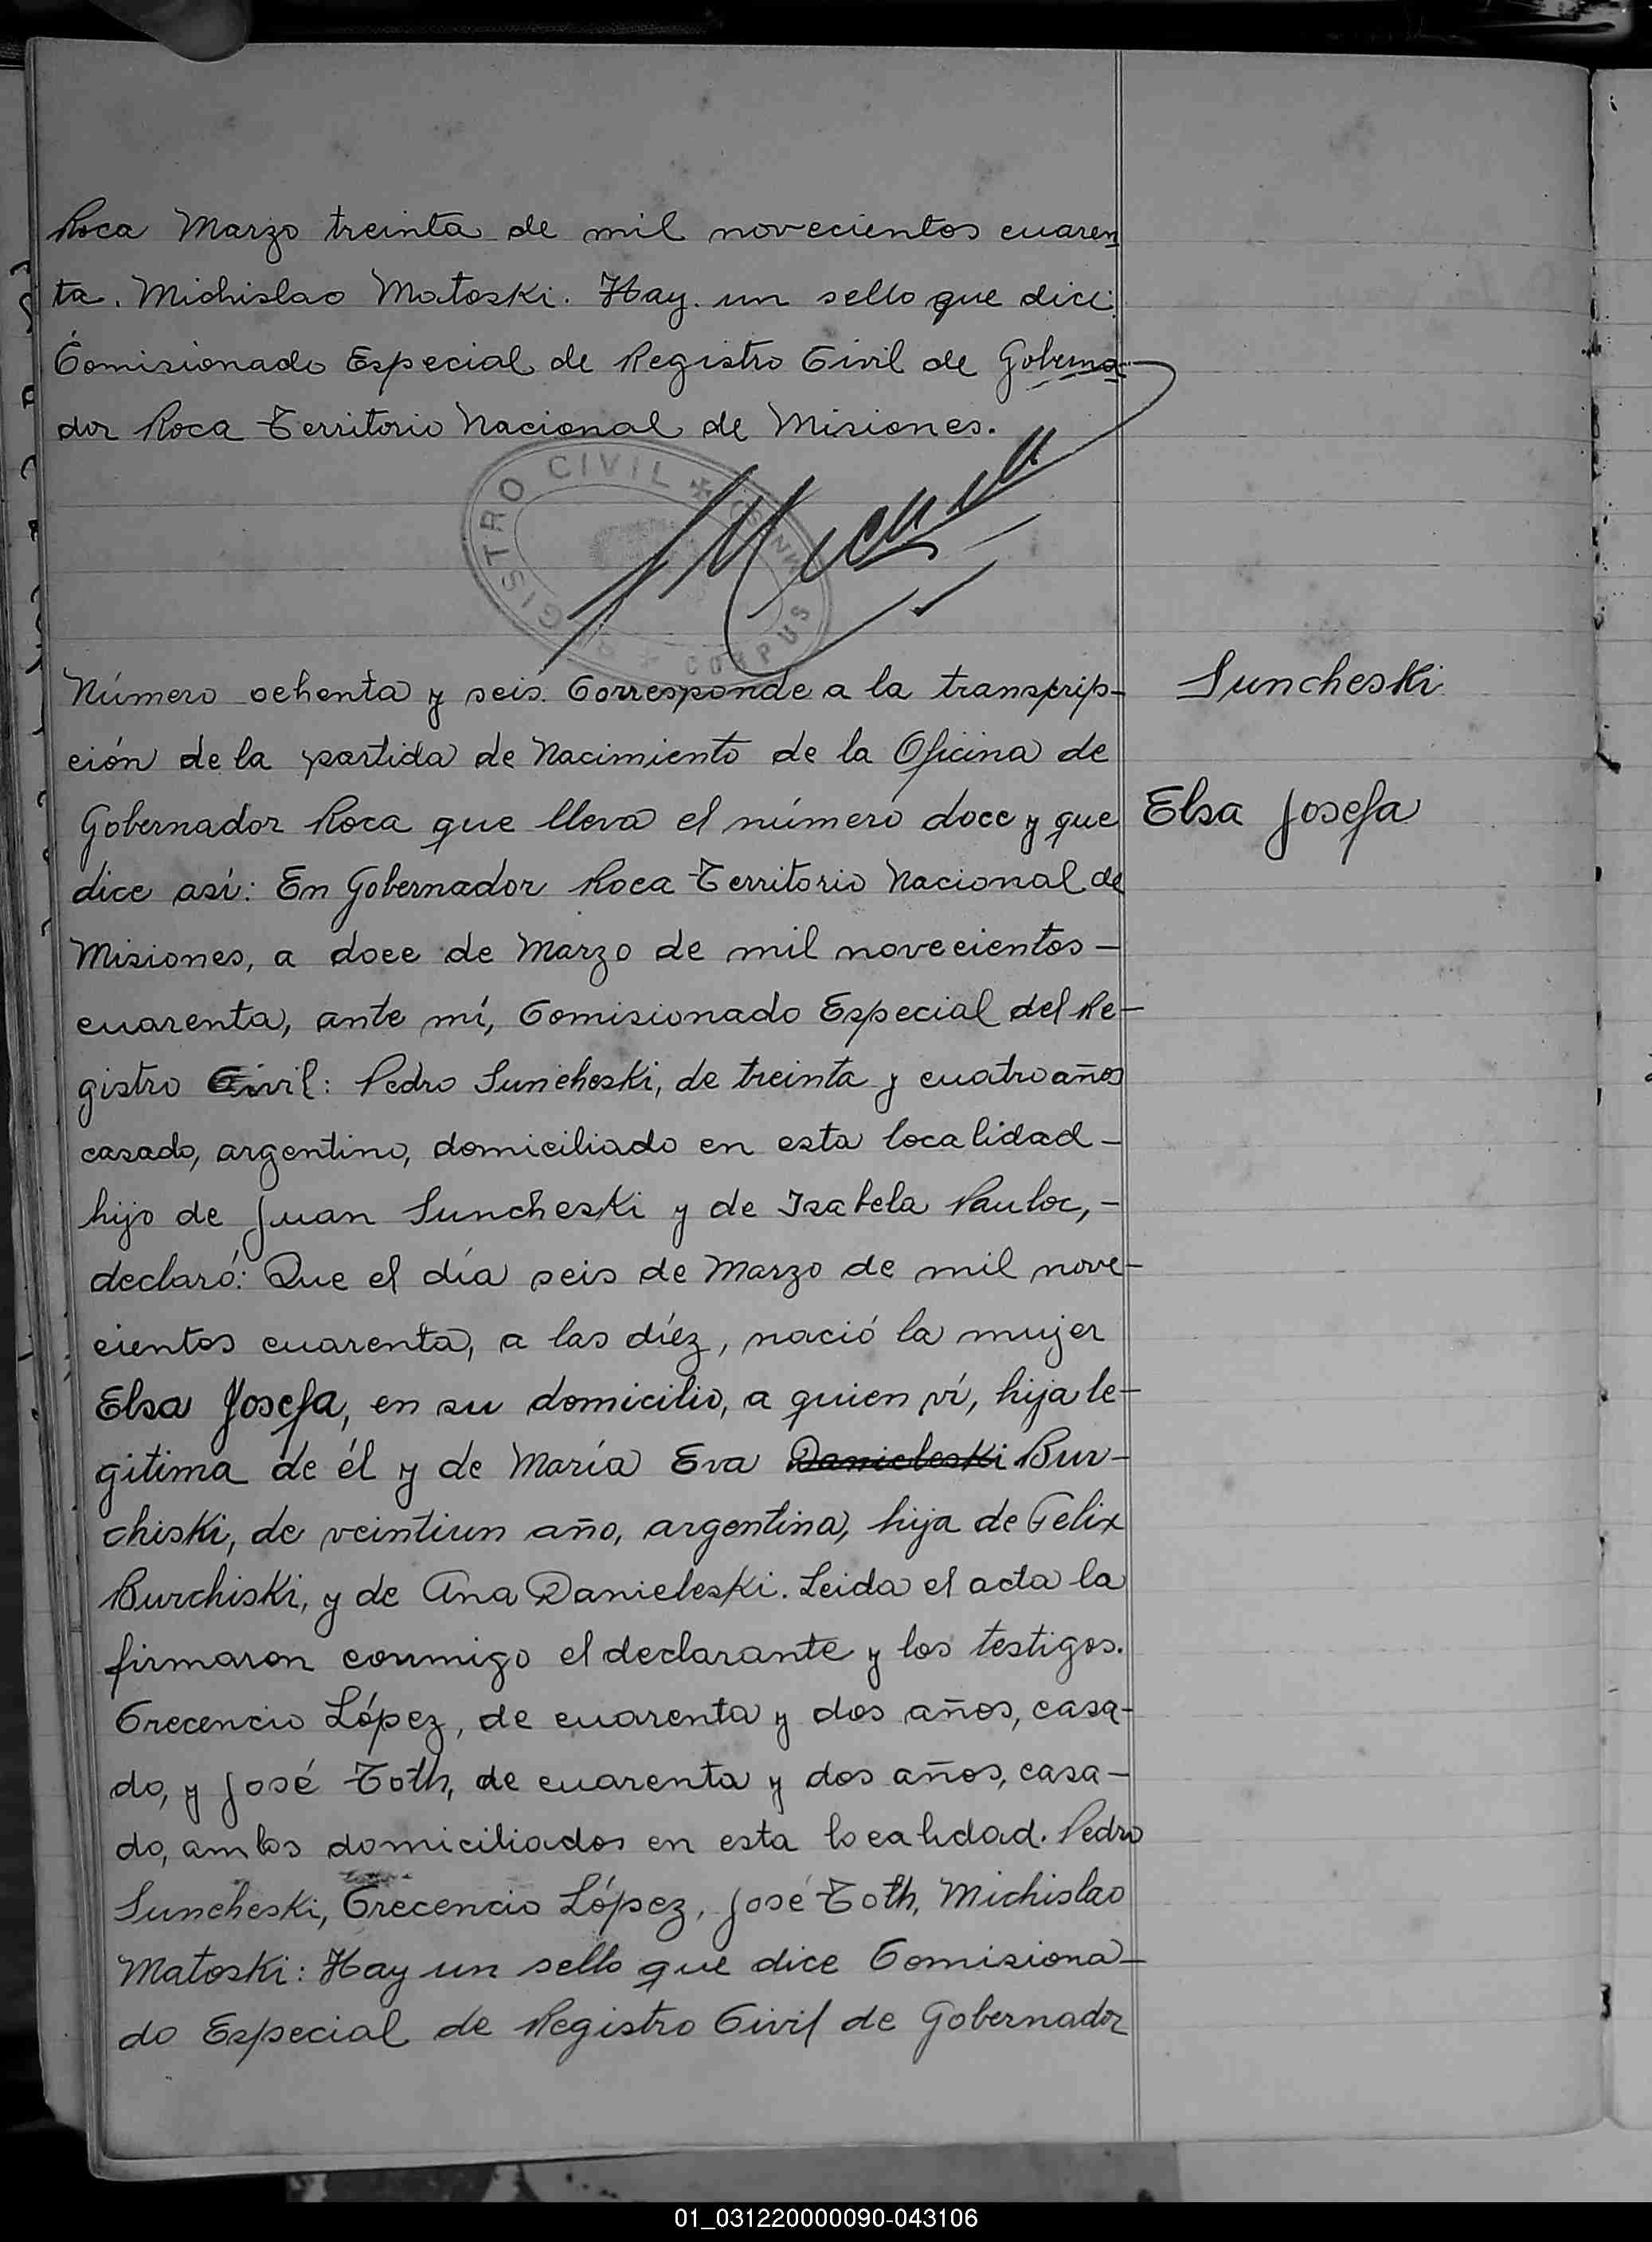 Roca Marzo treinta de mil novecientos cuaren
ta. Michislao Matoski. Hay un sello que dice:
Comisionado Especial de Registro Civil de Goberna
dor Roca Territorio Nacional de Misiones.
REGISTRO CIVIL ✠ MISIONES
CORPUS ✠
Número ochenta y seis. Corresponde a la transprip-
ción de la partida de Nacimiento de la Oficina de
Gobernador Roca que lleva el número doce y que
dice así: En Gobernador Roca Territorio Nacional de
Misiones, a doce de Marzo de mil novecientos -
cuarenta, ante mí, Comisionado Especial del Re-
gistro Civil: Pedro Suncheski, de treinta y cuatro años
casado, argentino, domiciliado en esta localidad -
hijo de Juan Suncheski y de Isabela Pauloc, -
declaró: Que el día seis de Marzo de mil nove-
cientos cuarenta, a las diéz, nació la mujer
Elsa Josefa, en su domicilio, a quien ví, hija le-
gitima de él y de María Eva Danieleski Bur-
chiski, de veintiun año, argentina, hija de Felix
Burchiski, y de Ana Danieleski. Leida el acta la
firmaron conmigo el declarante y los testigos.
Crecencio López, de cuarenta y dos años, casa-
do, y José Toth, de cuarenta y dos años, casa-
do, ambos domiciliados en esta localidad. Pedro
Suncheski, Crecencio López, José Toth, Michislao
Matoski: Hay un sello que dice Comisiona-
do Especial de Registro Civil de Gobernador
Suncheski
Elsa Josefa
01_031220000090-043106